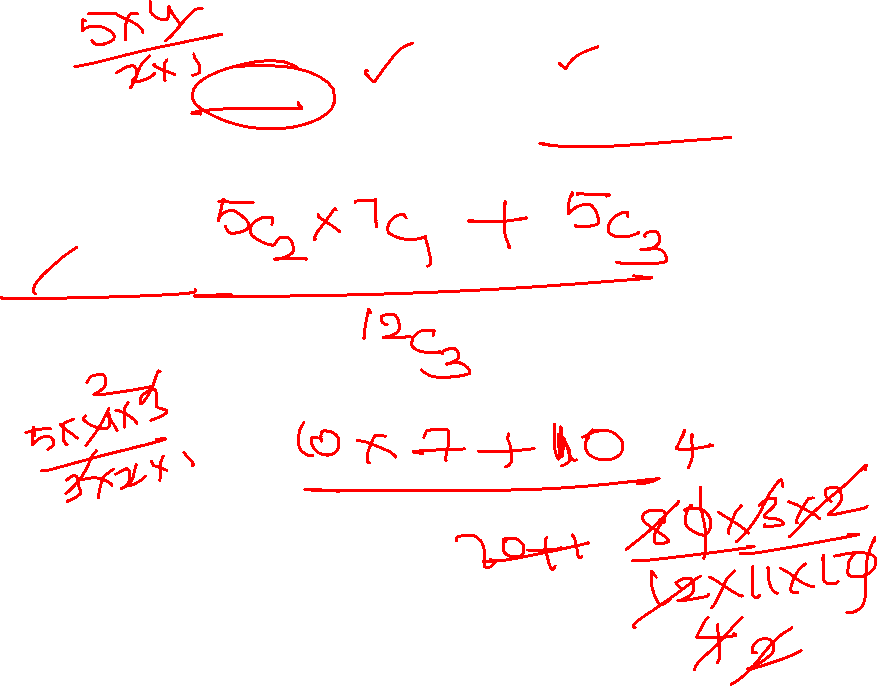 5×4
2×1
✓ ✓
5C2 × 7C1 + 5C3
12C3
2
5×4×3
3×2×1
10 × 7 + 10
4
80×3×2
12×11×10
4 2